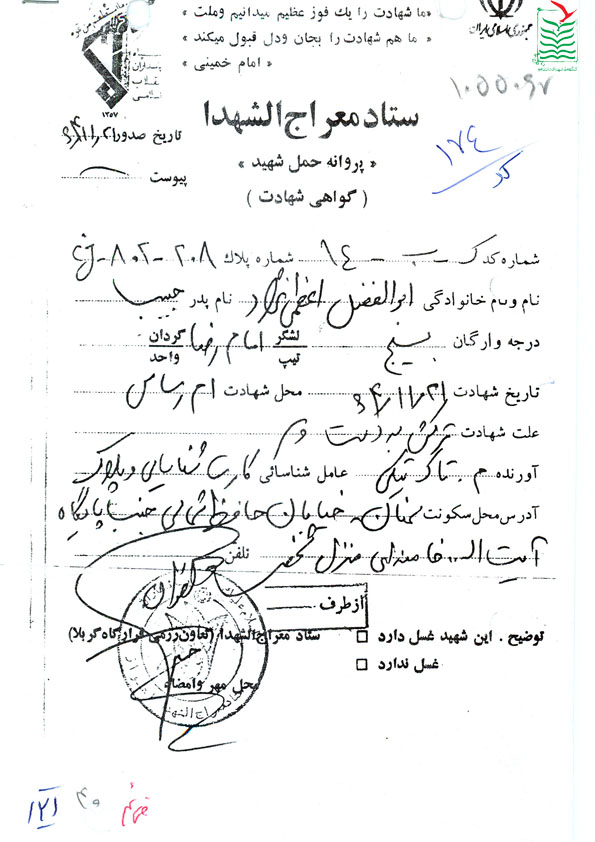 «ما شهادت را یك فوز عظیم میدانیم وملت
ما هم شهادت را بجان ودل قبول میکند»
«امام خمینی»
جمهوری اسلامی ایران
پاسداران
انقلاب
اسلامی
۱۳۵۷
۱۰۵۵۰۶۷
ستاد معراج الشهدا
تاریخ صدور
«پروانه حمل شهید»
۱۷۴
کد
پیوست
(گواهی شهادت)
شماره کد ک - ب - ۱۴ شماره پلاك ۲۰۸-۸۰۲-
نام ونام خانوادگی ابوالفضل نام پدر حبیب
درجه وارگان بسیج لشگر امام رضا گردان
تیپ واحد
تاریخ شهادت محل شهادت ام رصاص
علت شهادت ترکش به دست و
آورنده عامل شناسائی کارت شناسایی و پلاک
آدرس محل سکونت سمنان خیابان حافظ شمالی جنب پایگاه
آیت اله خامنه‌ای منزل شخصی تلفن
ازطرف
توضیح . این شهید غسل دارد □ ستاد معراج الشهدا (تعاون رزمی قرارگاه کربلا)
غسل ندارد □
محل مهر وامضاء
۱۲۱ ۴۰